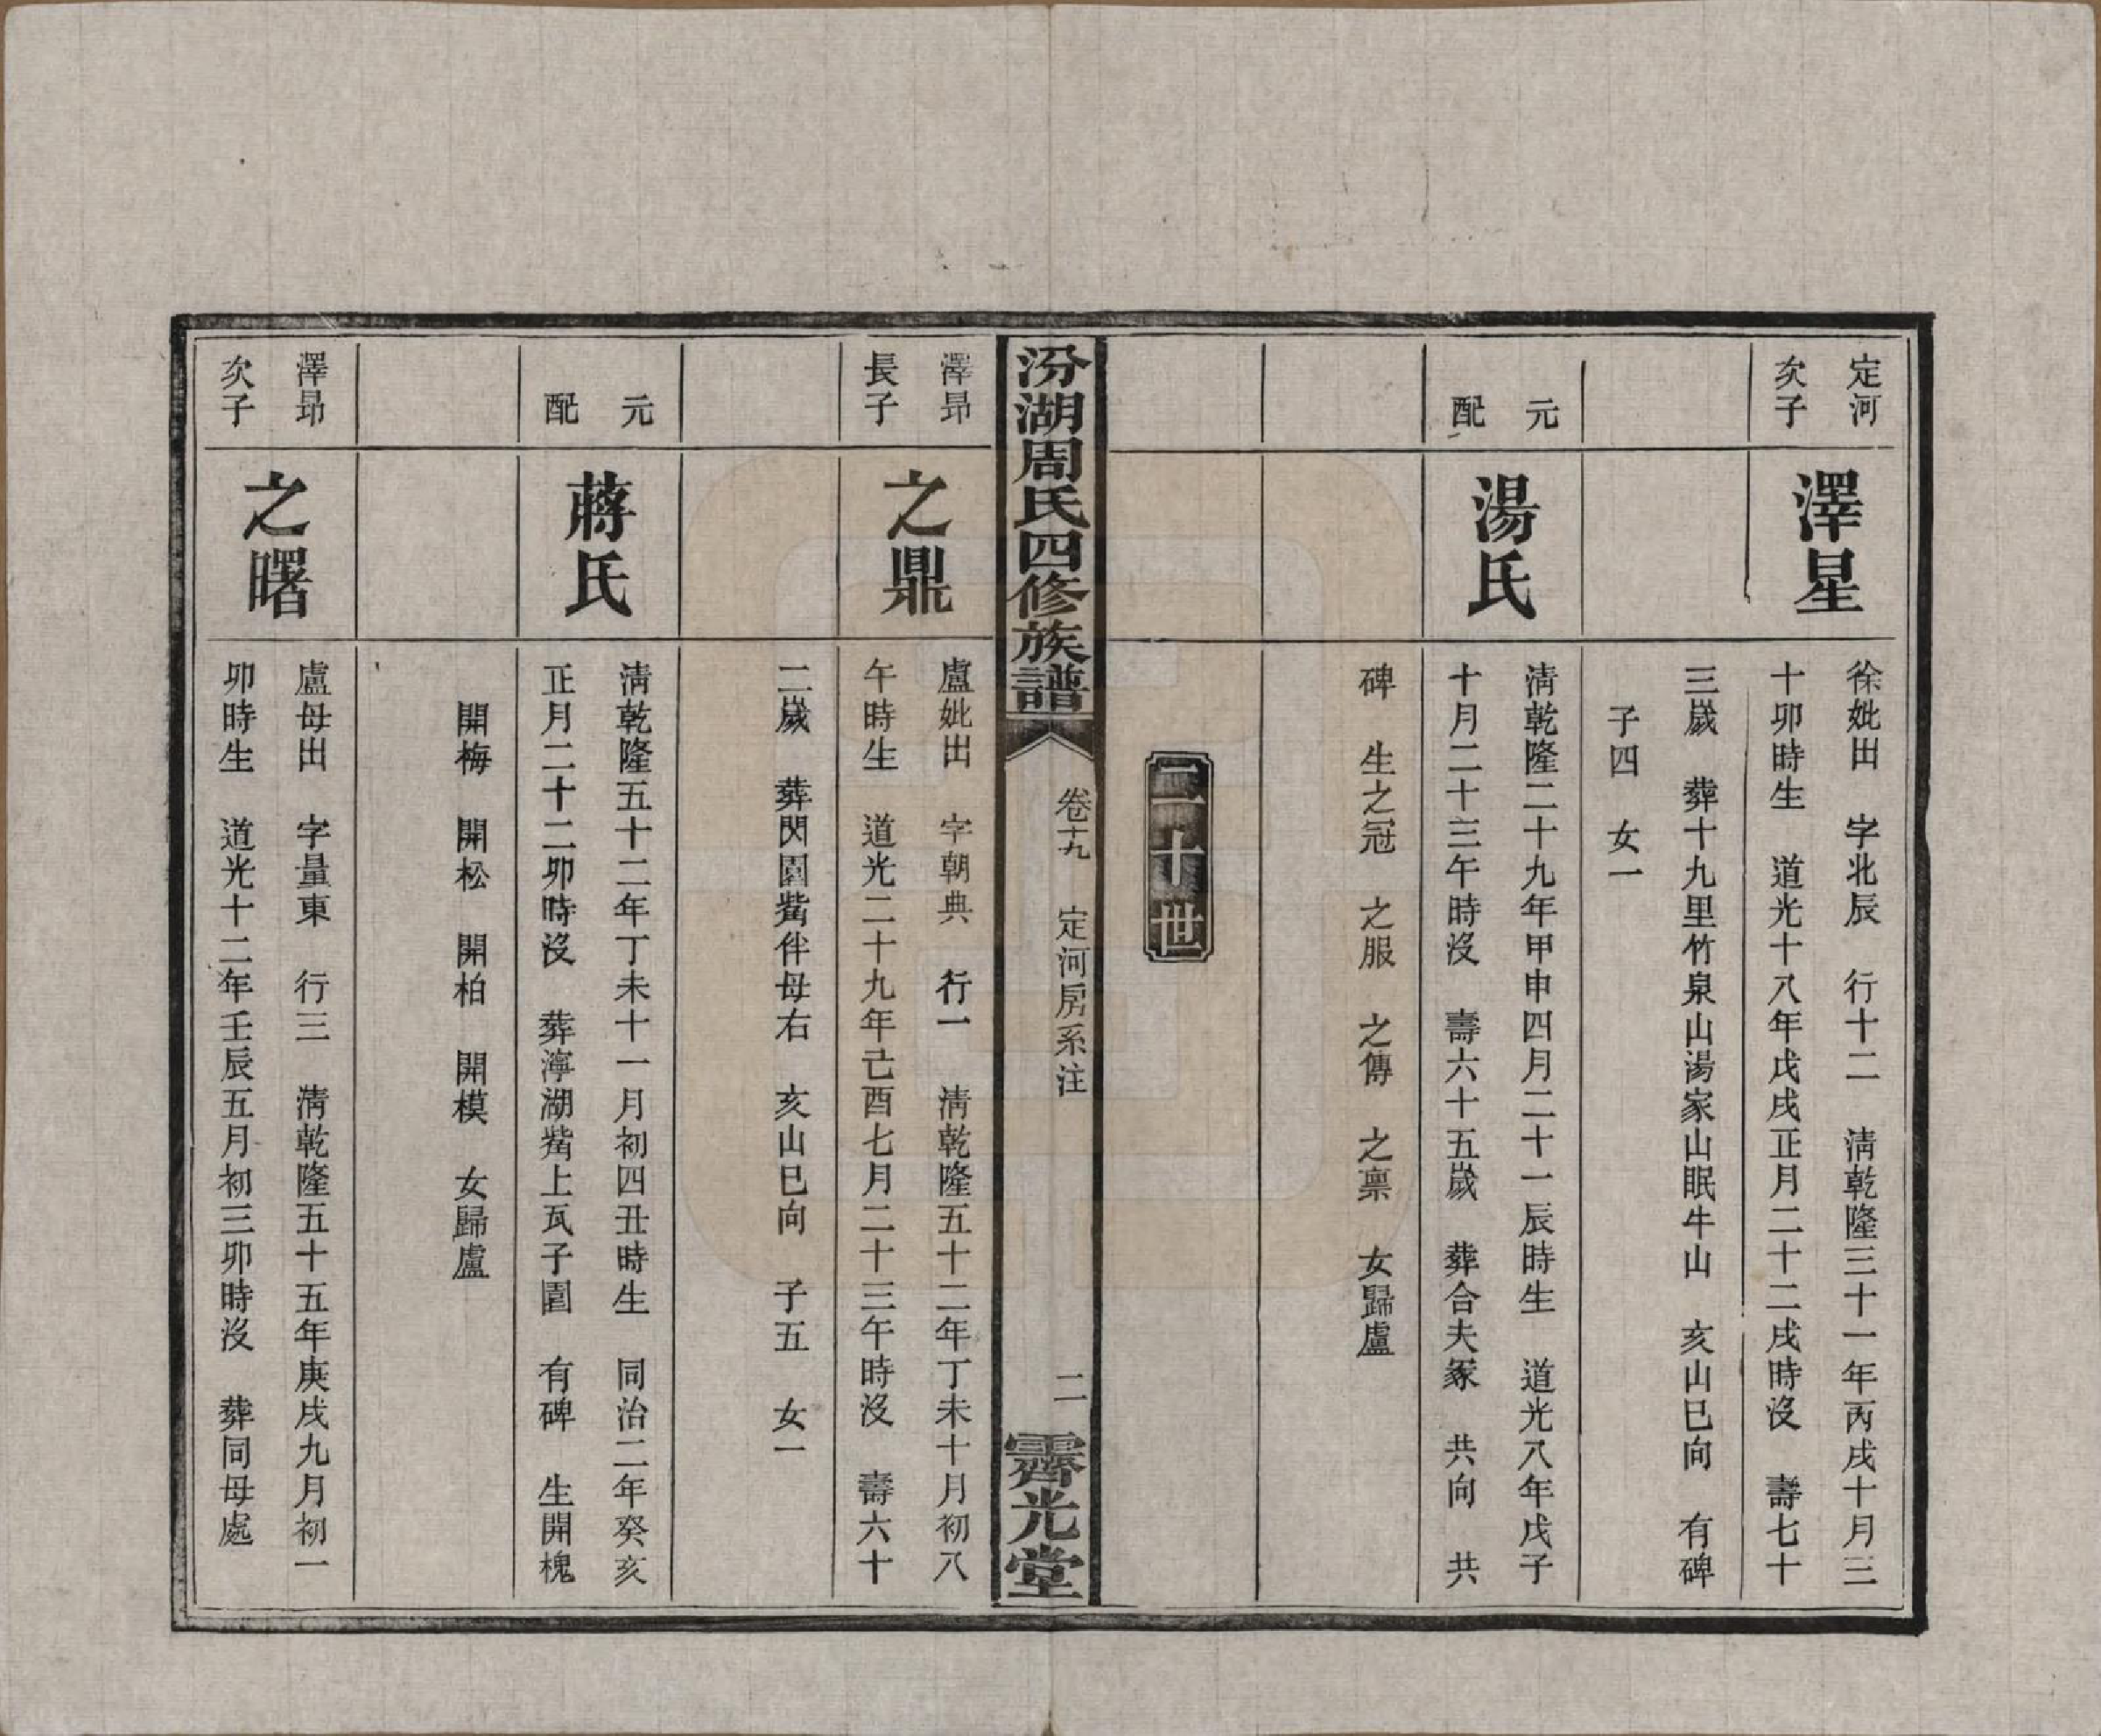 定河
次子
澤星
徐妣出　字北辰　行十二　清乾隆三十一年丙戌十月三
十卯時生　道光十八年戊戌正月二十二戌時沒　壽七十
三歲　葬十九里竹泉山湯家山眠牛山　亥山巳向　有碑
子四　女一
元
配
湯氏
清乾隆二十九年甲申四月二十一辰時生　道光八年戊子
十月二十三午時沒　壽六十五歲　葬合夫冢　共向　共
碑　生之冠　之服　之傳　之禀　女歸盧
二十世
汾湖周氏四修族譜
卷十九　定河房系注
二
霽光堂
澤昻
長子
之鼎
盧妣出　字朝典　行一　清乾隆五十二年丁未十月初八
午時生　道光二十九年己酉七月二十三午時沒　壽六十
二歲　葬閃園觜伴母右　亥山巳向　子五　女一
元
配
蔣氏
清乾隆五十二年丁未十一月初四丑時生　同治二年癸亥
正月二十二卯時沒　葬濘湖觜上瓦子園　有碑　生開槐
開梅　開松　開柏　開模　女歸盧
澤昻
次子
之曙
盧母出　字量東　行三　清乾隆五十五年庚戌九月初一
卯時生　道光十二年壬辰五月初三卯時沒　葬同母處